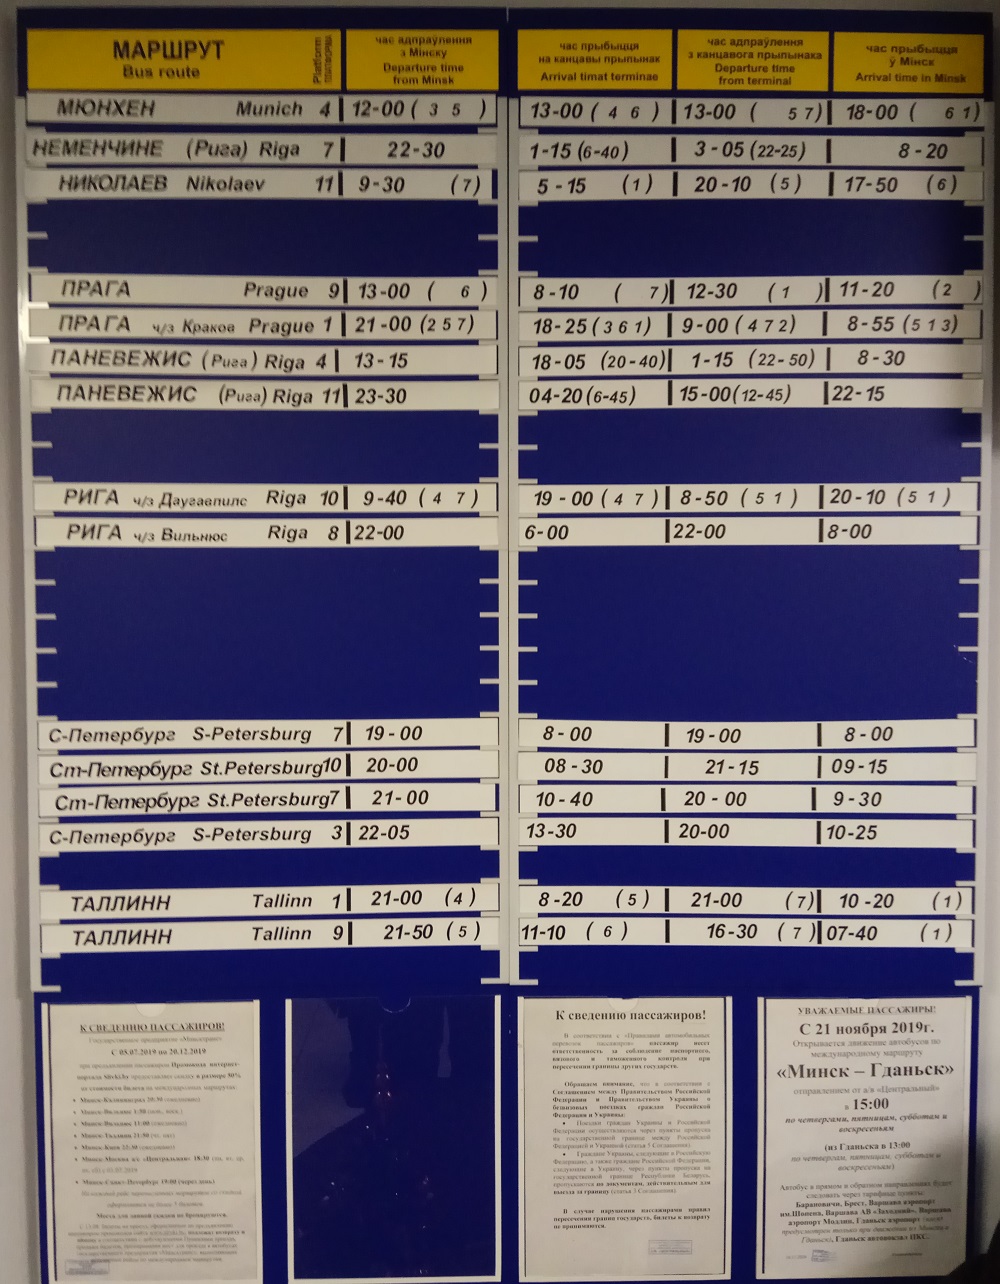 МАРШРУТ
Bus route
Platform
ПЛАТФОРМА
час адпраўлення
з Мінску
Departure time
from Minsk
час прыбыцця
на канцавы прыпынак
Arrival timat terminae
час адпраўлення
з канцавога прыпынака
Departure time
from terminal
час прыбыцця
ў Мінск
Arrival time in Minsk
МЮНХЕН Munich 4 12-00 ( 3 5 ) 13-00 ( 4 6 ) 13-00 ( 5 7) 18-00 ( 6 1)
НЕМЕНЧИНЕ (Рига) Riga 7 22-30 1-15 (6-40) 3-05 (22-25) 8-20
НИКОЛАЕВ Nikolaev 11 9-30 (7) 5-15 (1) 20-10 (5) 17-50 (6)
ПРАГА Prague 9 13-00 ( 6 ) 8-10 ( 7) 12-30 (1 ) 11-20 (2 )
ПРАГА ч/з Краков Prague 1 21-00 (2 5 7) 18-25 (3 6 1) 9-00 (4 7 2) 8-55 (5 1 3)
ПАНЕВЕЖИС (Рига) Riga 4 13-15 18-05 (20-40) 1-15 (22-50) 8-30
ПАНЕВЕЖИС (Рига) Riga 11 23-30 04-20 (6-45) 15-00 (12-45) 22-15
РИГА ч/з Даугавпилс Riga 10 9-40 ( 4 7 ) 19-00 ( 4 7 ) 8-50 ( 5 1 ) 20-10 ( 5 1 )
РИГА ч/з Вильнюс Riga 8 22-00 6-00 22-00 8-00
С-Петербург S-Petersburg 7 19-00 8-00 19-00 8-00
Ст-Петербург St.Petersburg 10 20-00 08-30 21-15 09-15
Ст-Петербург St.Petersburg 7 21-00 10-40 20-00 9-30
С-Петербург S-Petersburg 3 22-05 13-30 20-00 10-25
ТАЛЛИНН Tallinn 1 21-00 (4) 8-20 (5) 21-00 (7) 10-20 (1)
ТАЛЛИНН Tallinn 9 21-50 (5) 11-10 (6) 16-30 (7) 07-40 (1)
К СВЕДЕНИЮ ПАССАЖИРОВ!
С 05.07.2019 по 20.12.2019
К сведению пассажиров!
В соответствии с «Правилами автомобильных
перевозок пассажиров» пассажир несет
ответственность за соблюдение паспортного,
визового и таможенного контроля при
пересечении границы других государств.
Обращаем внимание, что в соответствии с
Соглашением между Правительством Российской
Федерации и Правительством Украины о
безвизовых поездках граждан Российской
Федерации и Украины:
В случае нарушения пассажирами правил
пересечения границ государств, билеты к возврату
не принимаются.
УВАЖАЕМЫЕ ПАССАЖИРЫ!
С 21 ноября 2019г.
Открывается движение автобусов по
международному маршруту
«Минск – Гданьск»
отправлением от а/в «Центральный»
в 15:00
по четвергам, пятницам, субботам и
воскресеньям
(из Гданьска в 13:00
по четвергам, пятницам, субботам и
воскресеньям)
Автобус в прямом и обратном направлениях будет
следовать через тарифные пункты:
Барановичи, Брест, Варшава аэропорт
им.Шопена, Варшава АВ «Заходний», Варшава
аэропорт Модлин, Гданьск аэропорт
Гданьск автовокзал ПКС.